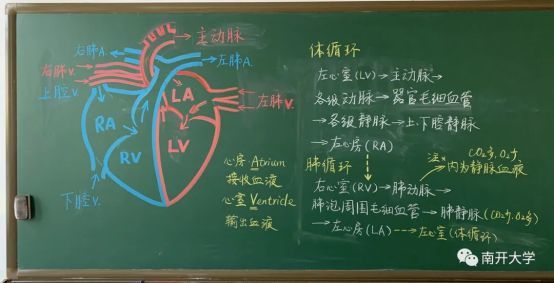 主动脉
右肺A.
左肺A.
右肺V.
上腔V.
左肺V.
LA
RA
LV
RV
下腔V.
心房 Atrium
接收血液
心室 Ventricle
输出血液
体循环
左心室(LV)→主动脉→
各级动脉→器官毛细血管
→各级静脉→上.下腔静脉
→右心房(RA)
肺循环
注*
CO₂多,O₂少
内为静脉血液
右心室(RV)→肺动脉→
肺泡周围毛细血管→肺静脉(CO₂少,O₂多)
→左心房(LA)-->左心室(体循环)
南开大学